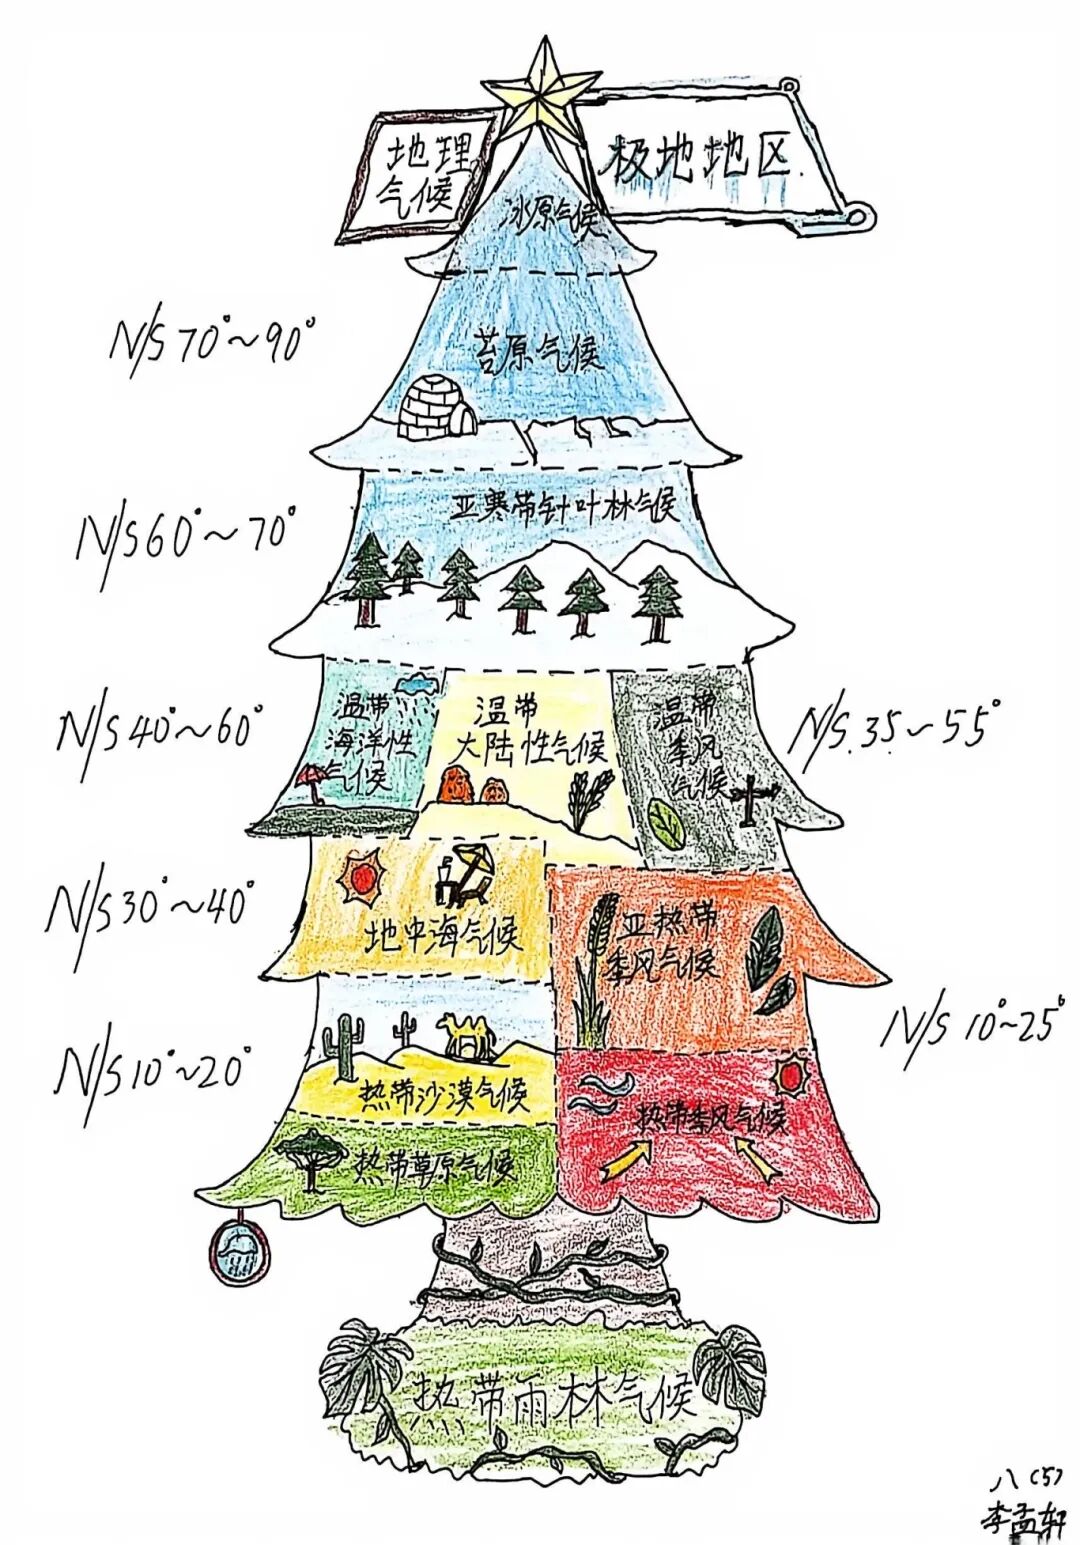 地理
气候
极地地区
冰原气候
N/S 70°~90°
苔原气候
N/S 60°~70°
亚寒带针叶林气候
N/S 40°~60°
温带
海洋性
气候
温带
大陆性气候
温带
季风
气候
N/S.35~55°
N/S 30°~40°
地中海气候
亚热带
季风气候
N/S 10°~20°
热带沙漠气候
N/S 10°~25°
热带季风气候
热带草原气候
热带雨林气候
八(5)
李孟轩